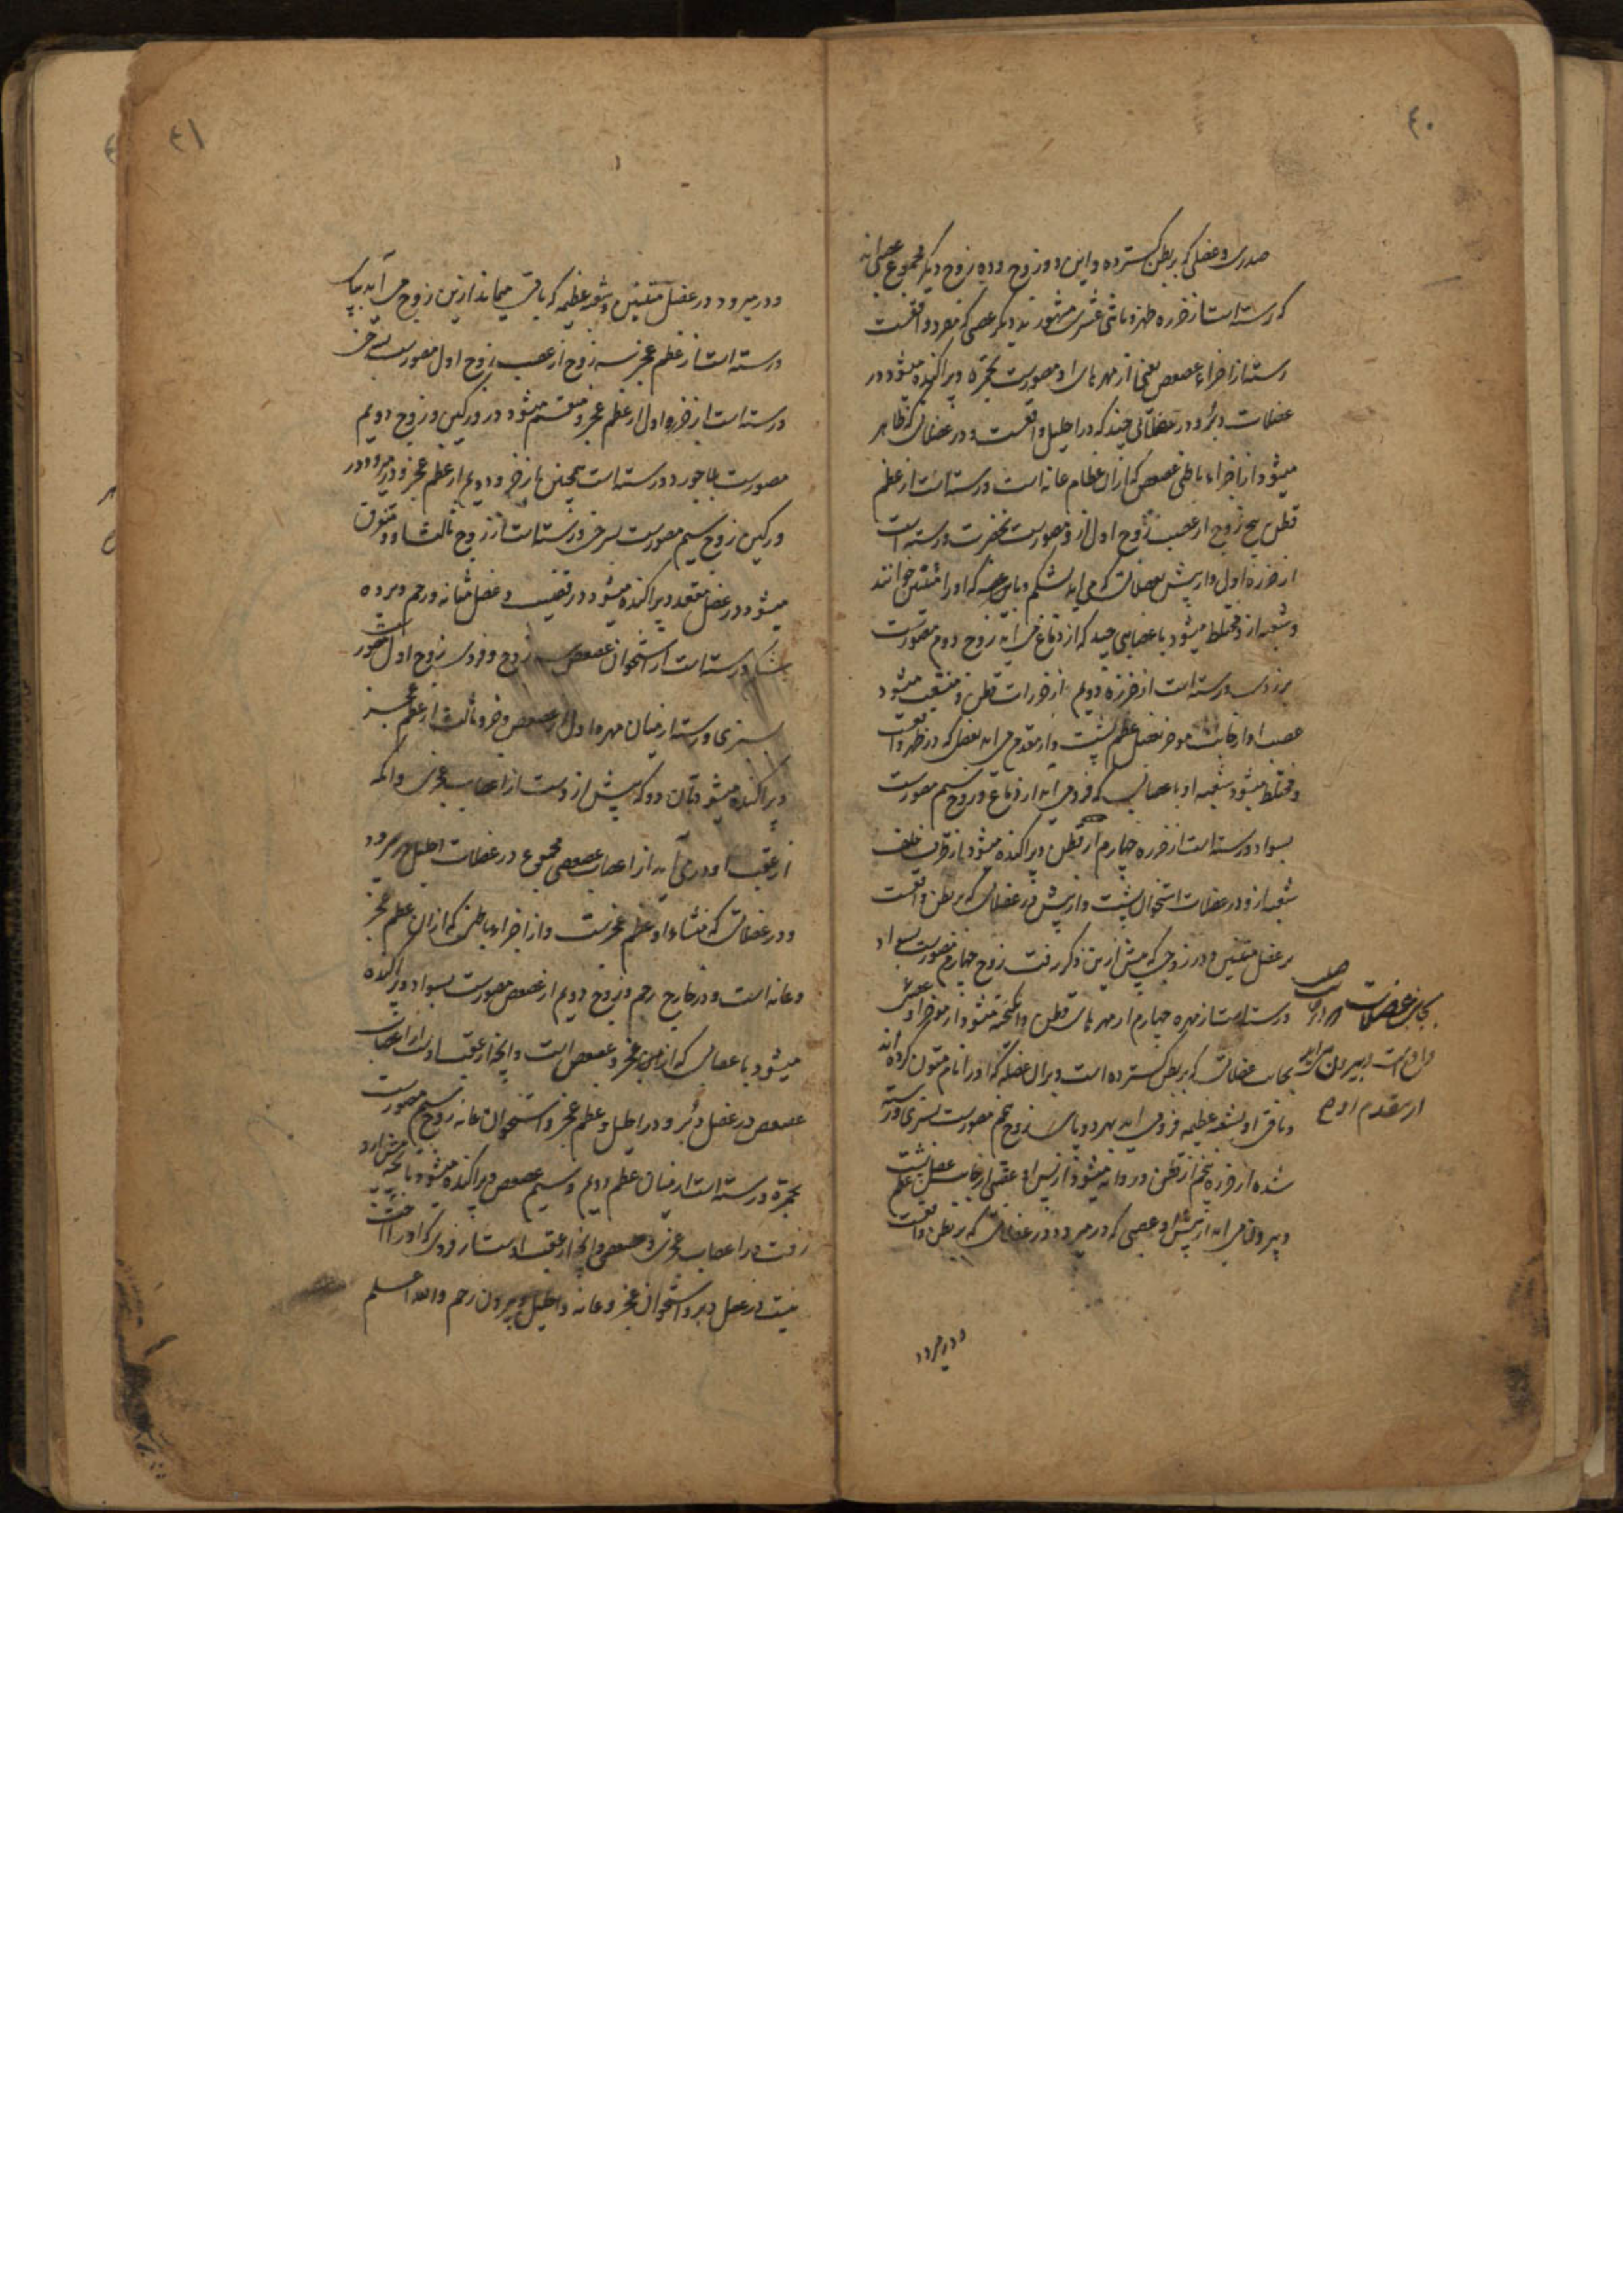 ٤٠
صدری و عضلی که بر بطن گسترده و این دو زوج و ده زوج دیگر مجموع عصبی‌اند
که رسته است از خرزه ظهر و باثنی عشری مشهورند دیگر عصبی که مفرد واقعست
رسته از اجزاء عصعص یعنی از مهرهای او مصورست بحمرة و پراکنده میشود در
عضلات دبر و در عضلاتی چند که در احلیل واقعست و در عضلاتی که ظاهر
میشود از اجزاء باطنی عصعص که از آن عظام عانه است و رسته است از عظم
قطن پنج زوج از عصب زوج اول از و مصورست بخضرت و رسته است
از خرزه اول و از پیش بعضلاتی که می‌آید بشکم و باین عضله که او را متنین خوانند
و شعبه از و مختلط میشود با عصابی چند که از دماغ می‌آید زوج دوم مصورست
بزردی و رسته است از خرزه دویم از خرزات قطن و منشعب میشود
عصب او از جانب موخر بعضل عظم پشت و از مقدم می‌آید بعضلی که در ظهر واقعست
و مختلط میشود شعبه او با عصابی که فرو می‌آید از دماغ و زوج سیم مصورست
بسواد و رسته است از خرزه چهارم از قطن و پراکنده میشود از طرف خلف
شعبه از و در عضلات استخوان پشت و از پیش در عضلاتی که بر بطن واقعست
بر عضل متنین و در زوجی که پیش ازین ذکر رفت زوج چهارم مصورست بسواد
و رسته است از مهره چهارم از مهرهای قطن و آمیخته میشود از موخر او عصبی
بجانب عضلاتی که بر بطن گسترده است و بر آن عضله که او را نام متون کرده‌اند
و باقی او بشعبه عظیمه فرو می‌آید بهر دو پای زوج پنجم مصورست بسبزی و رسته
شده از خرزه پنجم از قطن و روانه میشود از پس او عصبی از جانب عضل پشت عظم
و بیرون می‌آید از پیش او عصبی که در میرود در عضلاتی که بر بطن واقعست
و در میرود
بجانب عضلات صلب
و بیرون می‌آید
از مقدم او
٤١
و در میرود در عضل متنین و شعبه عظیمه که باقی میماند ازین زوج می‌آید بپای
و رسته است از عظم عجز سه زوج از عصب زوج اول مصورست بسرخی
و رسته است از خرزه اول از عظم عجز و منقسم میشود در ورکین و زوج دویم
مصورست بلاجورد و رسته است همچنین از خرزه دویم از عظم عجز و در میرود در
ورکین زوج سیم مصورست بسرخی و رسته است از زوج ثالث او و متفرق
میشود در عضل مقعد و پراکنده میشود در قضیب و عضل مثانه و رحم و پرده
شکم و رسته است از استخوان عصعص سه زوج و فردی زوج اول مصور
بسبزی و رسته از میان مهره اول از عصعص و خرزه ثالث از عظم عجز
و پراکنده میشود بآن دو که پیش ازوست از اعصاب عجزی و آنکه
از عقب او در می‌آید از اعصاب عصعصی مجموع در عضلات احلیل میرود
و در عضلاتی که منشاء او عظم عجزست و از اجزاء باطنی که از آن عظم عجز
و عانه است و در خارج رحم و زوج دویم از عصعص مصورست بسواد و پراکنده
میشود با عصابی که از میان عجز و عصعص است و آنچه از عقب اوست از اعصاب
عصعص در عضل دبر و در احلیل و عظم عجز و استخوان عانه زوج سیم مصورست
بحمرة و رسته است از میان عظم دویم و سیم عصعص و پراکنده میشود بآنچه پیش ازو
رفت در اعصاب عجزی و عصعصی و آنچه از عقب اوست از فردی که او را جفت
نیست در عضل دبر و استخوان عجز و عانه و احلیل و بیرون رحم والله اعلم